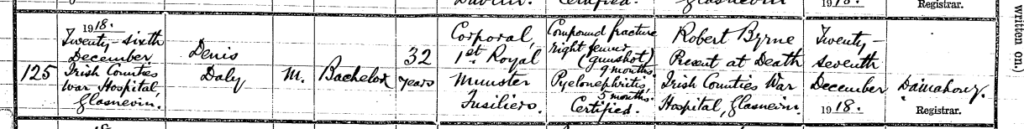 Dublin. Certified. Glasnevin 1918. Registrar.
125
1918.
Twenty-sixth
December
Irish Counties
War Hospital,
Glasnevin.
Denis
Daly
M.
Bachelor
32
years
Corporal,
1st Royal
Munster
Fusiliers.
Compound fracture
right femur
(gunshot)
9 months.
Pyelonephritis,
5 months.
Certified.
Robert Byrne
Present at Death
Irish Counties War
Hospital, Glasnevin
Twenty-
seventh
December
1918.
Registrar.
written on.)